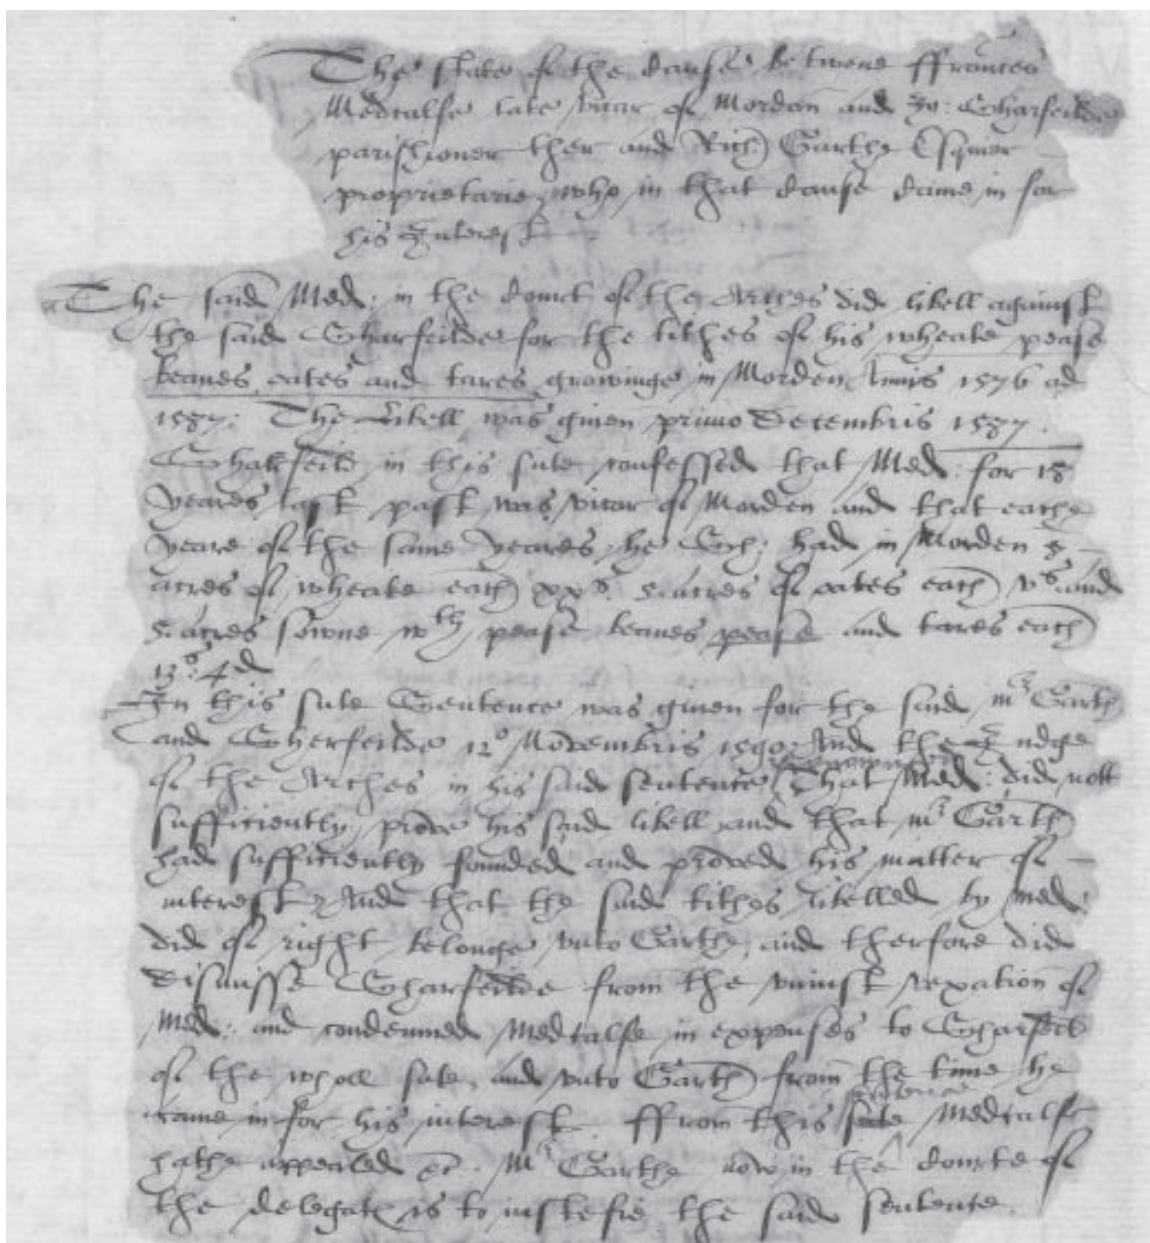 The state of the cause betwene ffraunces
Medcalfe late vicar of Mordon and Jo: Wharfeilde
parishioner ther and Rich) Garthe Esquier
proprietarie who in that cause came in for
his Interest
The said Med: in the Court of the Arches did libell against
the said Wharfeilde for the tithes of his wheate pease
beanes oates and tares growinge in Morden Annis 1576 ad
1587: The Libell was given primo Decembris 1587.
Wharfeild in this sute confessed that Med: for 18
yeares last past was vicar of Morden and that eache
yeare of the same yeares he Wh: had in Morden 5
acres of wheate each) xxs. 5 acres of oates each) vs and
5 acres sowne wth pease beanes pease and tares each)
13s: 4d
In this sute Sentence was given for the said mr Garth
and Wherfeilde 12o Novembris 1590: And the Judge
of the Arches in his said sentence That Med: did nott
sufficiently prove his said libell and that mr Garth
had sufficiently founded and proved his matter of
interest And that the said tithes libelled by med:
did of right belonge unto Garthe and therfore did
dismisse Wharfeilde from the uniust vexation of
Med: and condemned Medcalfe in expenses to Wharfeild
of the wholl sute and unto Garth) from the time he
came in for his interest. ffrom this Medcalfe
hathe appealed &c. Mr Garthe now in the Courte of
the delegates is to iustefie the said sentence.